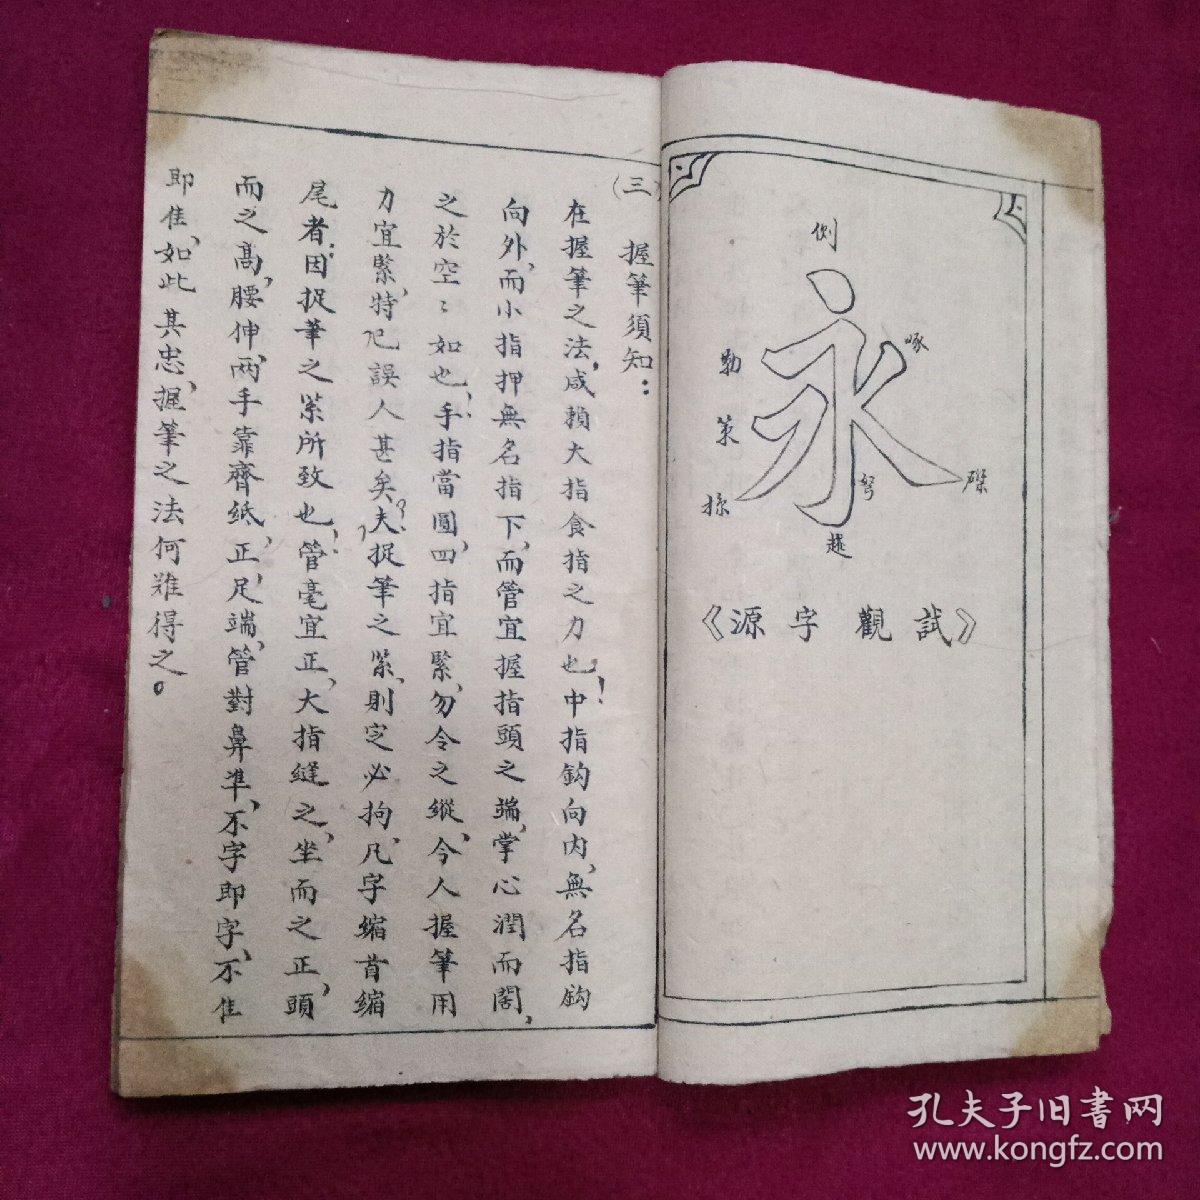 側
啄
勒
策
掠
弩
磔
趯
《源字觀試》
(三)
握筆須知：
在握筆之法，咸賴大指食指之力也！中指鈎向內，無名指鈎
向外，而小指押無名指下，而管宜握指頭之端，掌心潤而闊，
之於空〻如也，手指當圓，四指宜緊，勿令之縱，今人握筆用
力宜緊，特圯誤人甚矣？夫捉筆之緊，則定必拘，凡字縮首縮
尾者，因捉筆之緊所致也，管毫宜正，大指縫之，坐而之正，頭
而之高，腰伸，兩手靠齊紙，正足端，管對鼻準，不字即字，不隹
即隹，如此其忠，握筆之法何難得之。
孔夫子旧书网
www.kongfz.com